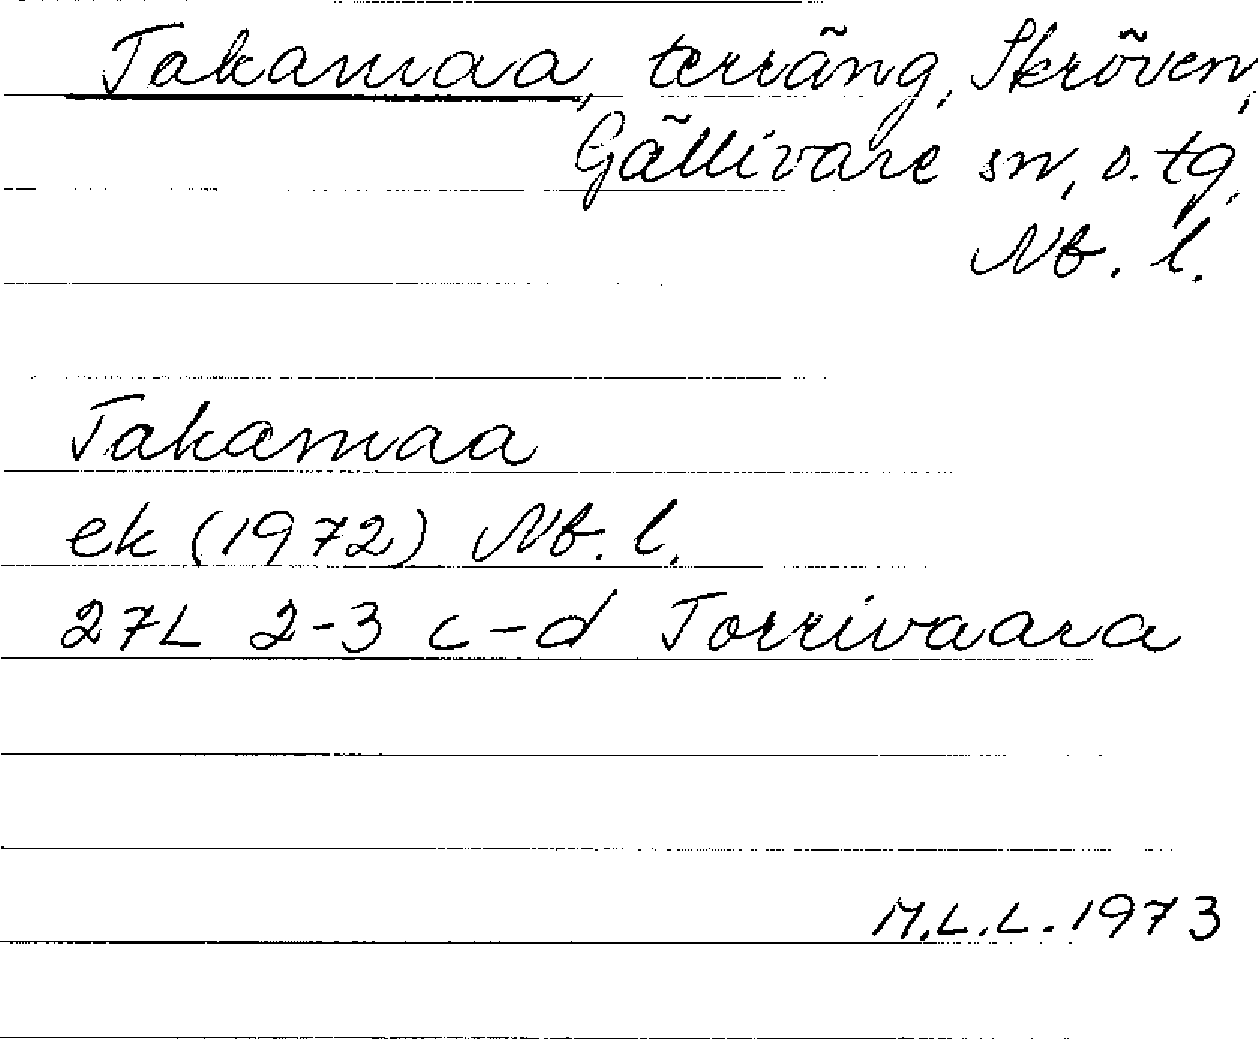 Takamaa, terräng, Skröven,
Gällivare sn, o. tg,
Nb. l.
Takamaa
ek (1972) Nb. l.
27L 2-3 c-d Torrivaara
M.L.L. 1973